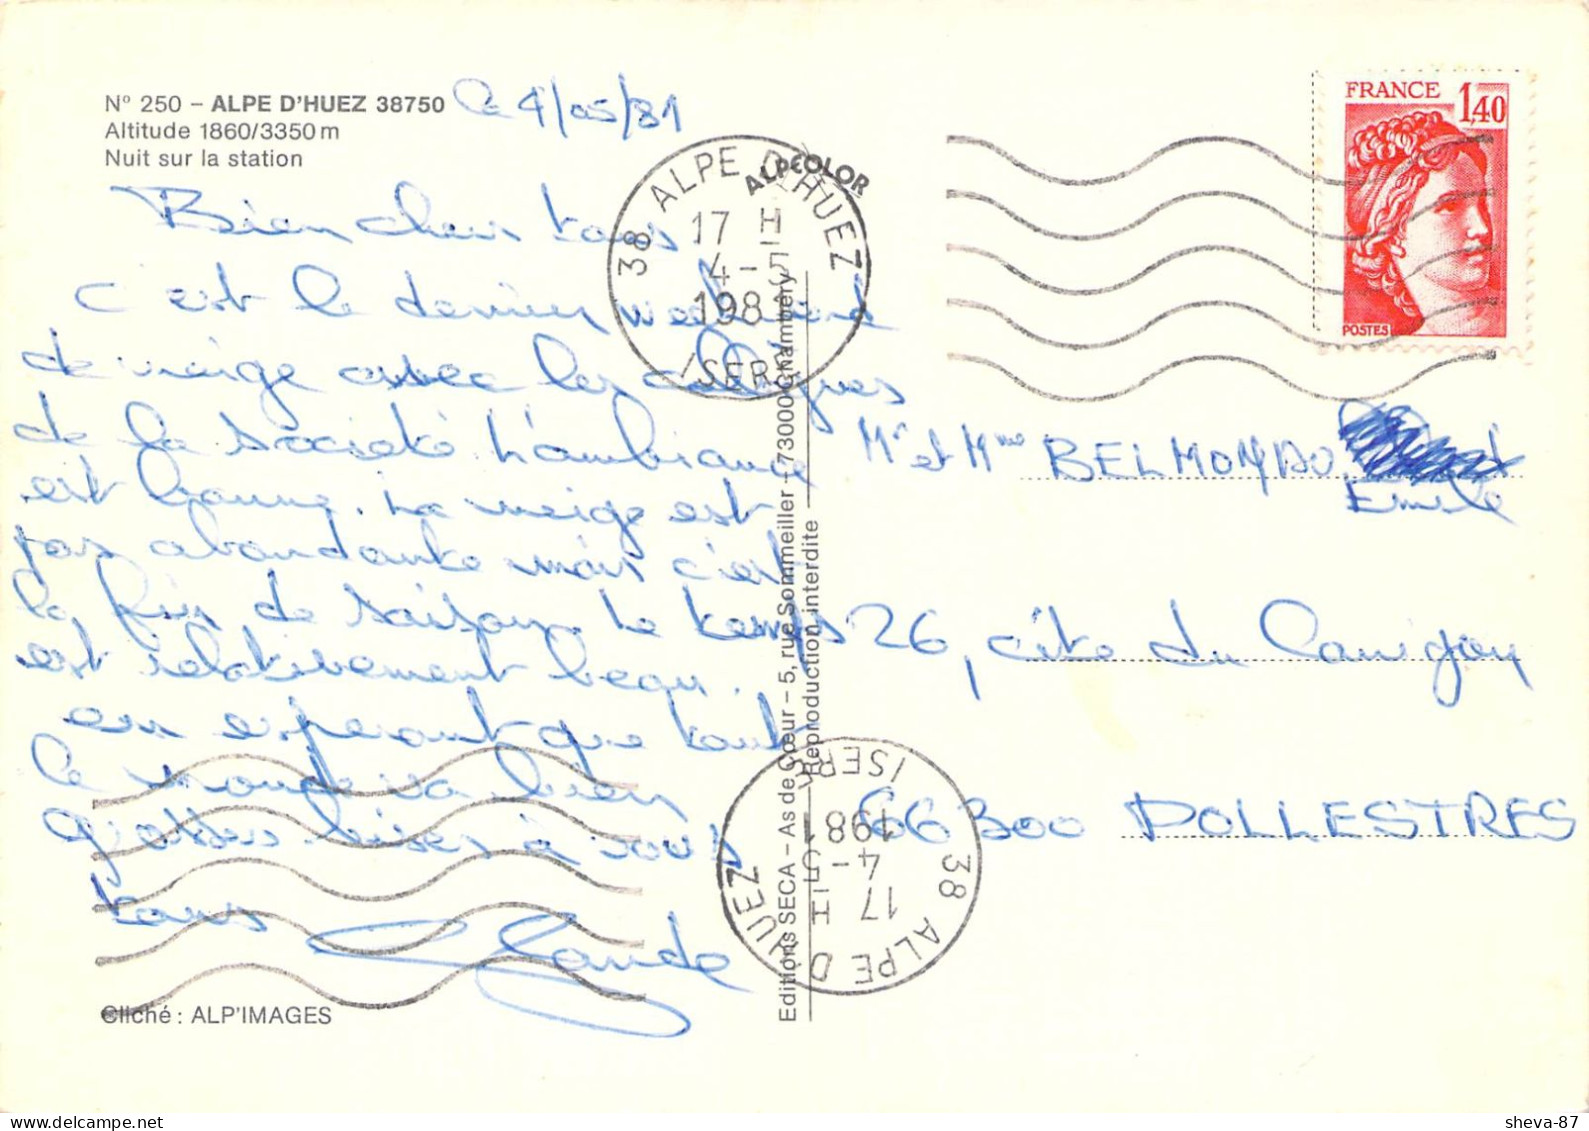 N° 250 – ALPE D'HUEZ 38750
Altitude 1860/3350 m
Nuit sur la station
le 4/05/81
Bien chers tous
C'est le dernier week end
de neige avec les collègues
de la Société L'ambiance
est bonne. La neige est
pas abondante mais c'est
la fin de saison. Le temps
est relativement beau.
en esperant que tout
le monde va bien
grosses bises à vous
tous Claude
Cliché : ALP'IMAGES
ALPCOLOR
38 ALPE D'HUEZ
17 H
4-5
1981
ISERE
Editions SECA – As de Cœur – 5, rue Sommeiller – 73000 Chambéry
Reproduction interdite
FRANCE 1,40
POSTES
Mr et Mme BELMONDO
Emile
26, cité du Canigou
66300 POLLESTRES
38 ALPE D'HUEZ
17 H
4-5
1981
ISERE
sheva-87